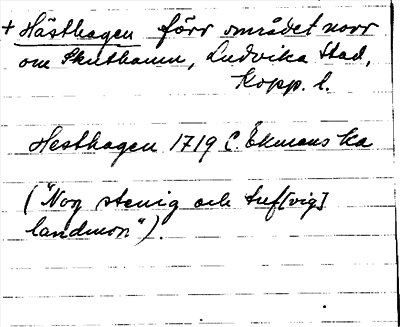 + Hästhagen förr området norr
om Skuthamn, Ludvika stad,
Kopp. l.
Hesthagen 1719 C. Ekmans ka
("Nog stenig och tuf[vig]
landmon").